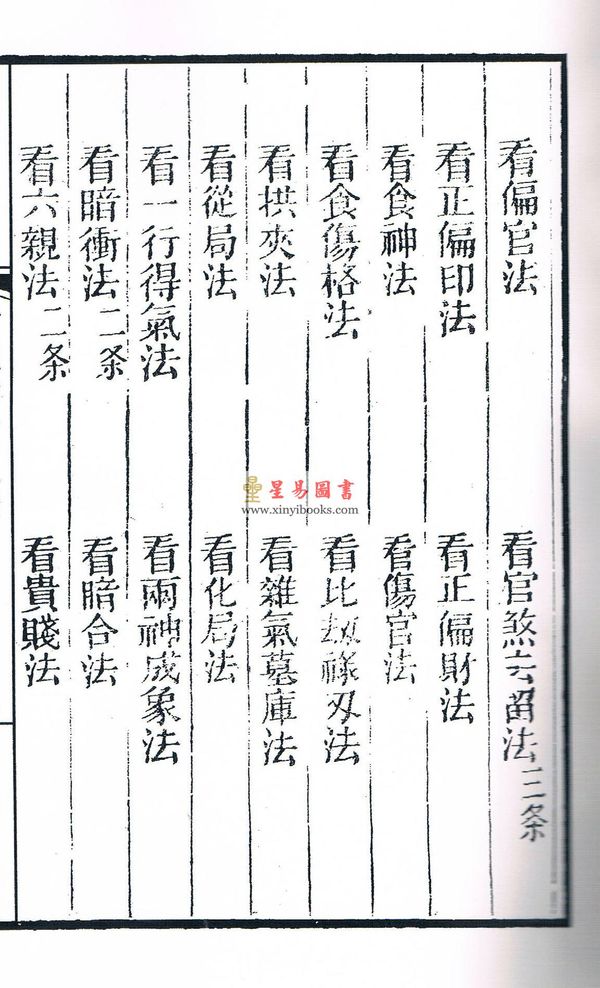 看偏官法 看官煞去留法 三条
看正偏印法 看正偏財法
看食神法 看傷官法
看食傷格法 看比劫祿刃法
看拱夾法 看雜氣墓庫法
看從局法 看化局法
看一行得氣法 看兩神成象法
看暗衝法 二条 看暗合法
看六親法 二条 看貴賤法
星易圖書
www.xinyibooks.com